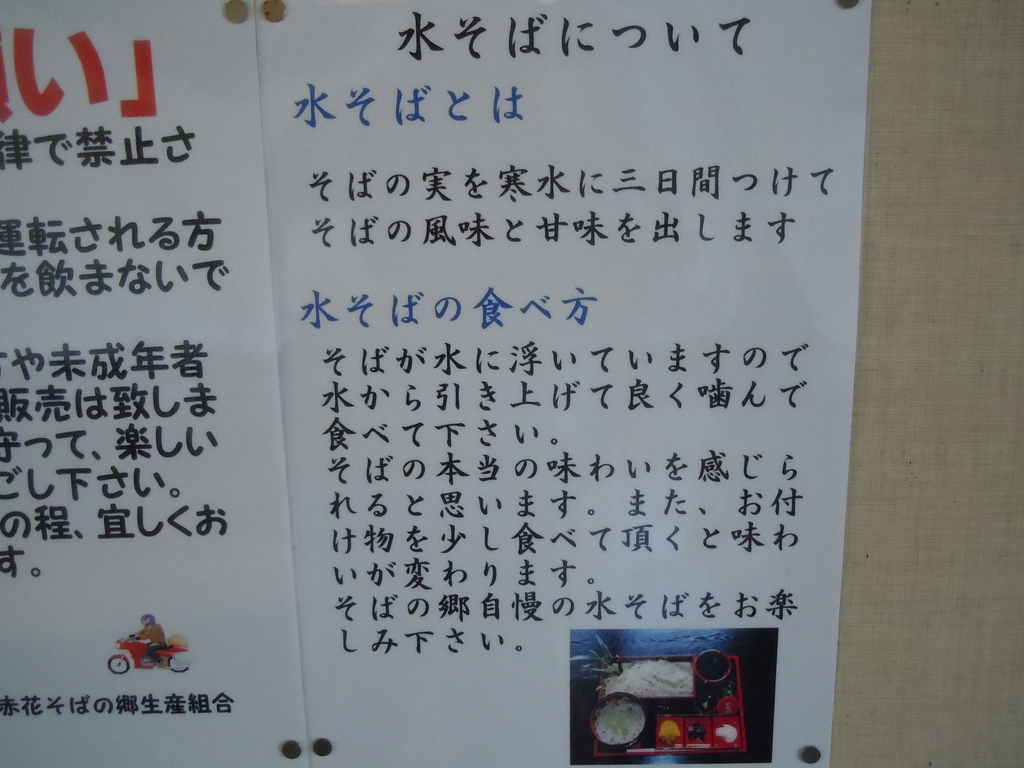 い」
律で禁止さ
運転される方
を飲まないで
や未成年者
販売は致しま
守って、楽しい
ごし下さい。
の程、宜しくお
す。
赤花そばの郷生産組合
水そばについて
水そばとは
そばの実を寒水に三日間つけて
そばの風味と甘味を出します
水そばの食べ方
そばが水に浮いていますので
水から引き上げて良く噛んで
食べて下さい。
そばの本当の味わいを感じら
れると思います。また、お付
け物を少し食べて頂くと味わ
いが変わります。
そばの郷自慢の水そばをお楽
しみ下さい。